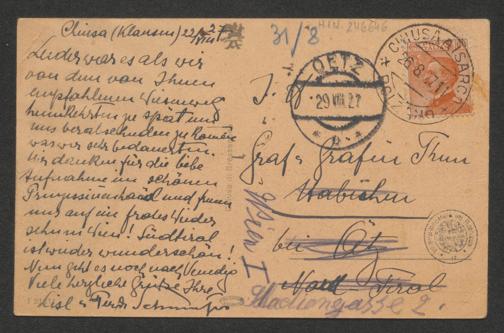 Chiusa (Klausen) 22/VIII 27
31/8
HIN. 246646
Leider war es als wir
von dem von Ihnen
empfohlenen
heimkehrten zu spät um
uns verabschieden zu können
was wir sehr bedauerten.
Wir denken für die liebe
Aufnahme im schönen
und freuen
uns auf ein frohes Wieder
sehn in Wien! Südtirol
ist wieder wunderschön!
Nun geht es noch nach Venedig
Viele herzliche Grüße Ihre
Lisl u
OETZ
29 VIII 27
CHIUSA ALL'ISARCO
BOLZANO
26.8.27.11
Graf u Gräfin Thun
Habichen
bei Ötz
Nord Tirol
Wien I
Stadiongasse 2.